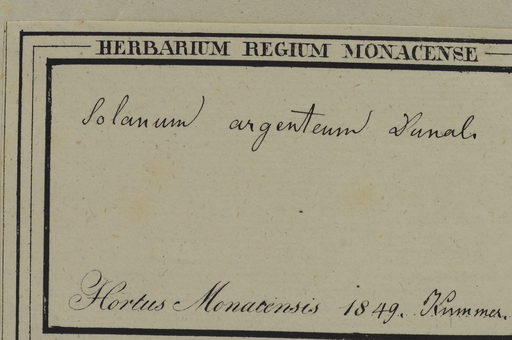 HERBARIUM REGIUM MONACENSE
Solanum argenteum Dunal.
Hortus Monacensis 1849. Kummer.